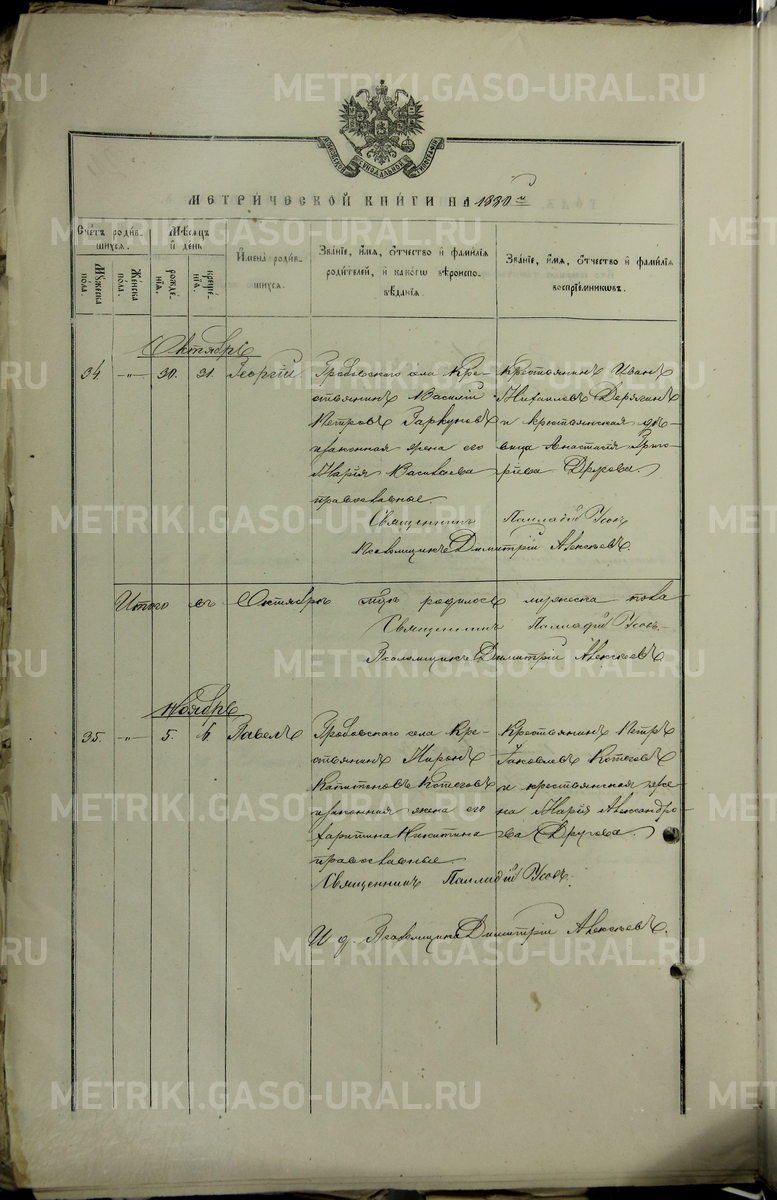 МЕТРИЧЕСКОЙ КНИГИ НА 1880 й
Счетъ родившихся.
Мѣсяцъ и день
Мужеска пола.
Женска пола.
рождения.
крещения.
Имена родившихся.
Званіе, имя, отчество и фамилія родителей, и какого вѣроисповѣданія.
Званіе, имя, отчество и фамилія воспріемниковъ.
Октябрь
34 -"- 30. 31. Георгій
Гробовскаго села Кре-
стьянинъ Василій
Петровъ
и законная жена его
Марія Васильева
православные.
Крестьянинъ Иванъ
Михаиловъ
и крестьянская дѣ-
вица Анастасія Григо-
рьева Другова.
Священникъ Палладій Усовъ
Псаломщикъ Димитрій Алексѣевъ.
Итого въ Октябрѣ родилось мужеска пола
Священникъ Палладій Усовъ.
Псаломщикъ Димитрій Алексѣевъ
Ноябрь
35. -"- 5. 6. Павелъ
Гробовскаго села Кре-
стьянинъ Миронъ
Капитоновъ Котеговъ
и законная жена его
Харитина Никитина
православные.
Крестьянинъ Петръ
Яковлевъ Котеговъ
и крестьянская же-
на Марія Александро-
ва Другова.
Священникъ Палладій Усовъ.
И д. Псаломщика Димитрій Алексѣевъ.
METRIKI.GASO-URAL.RU